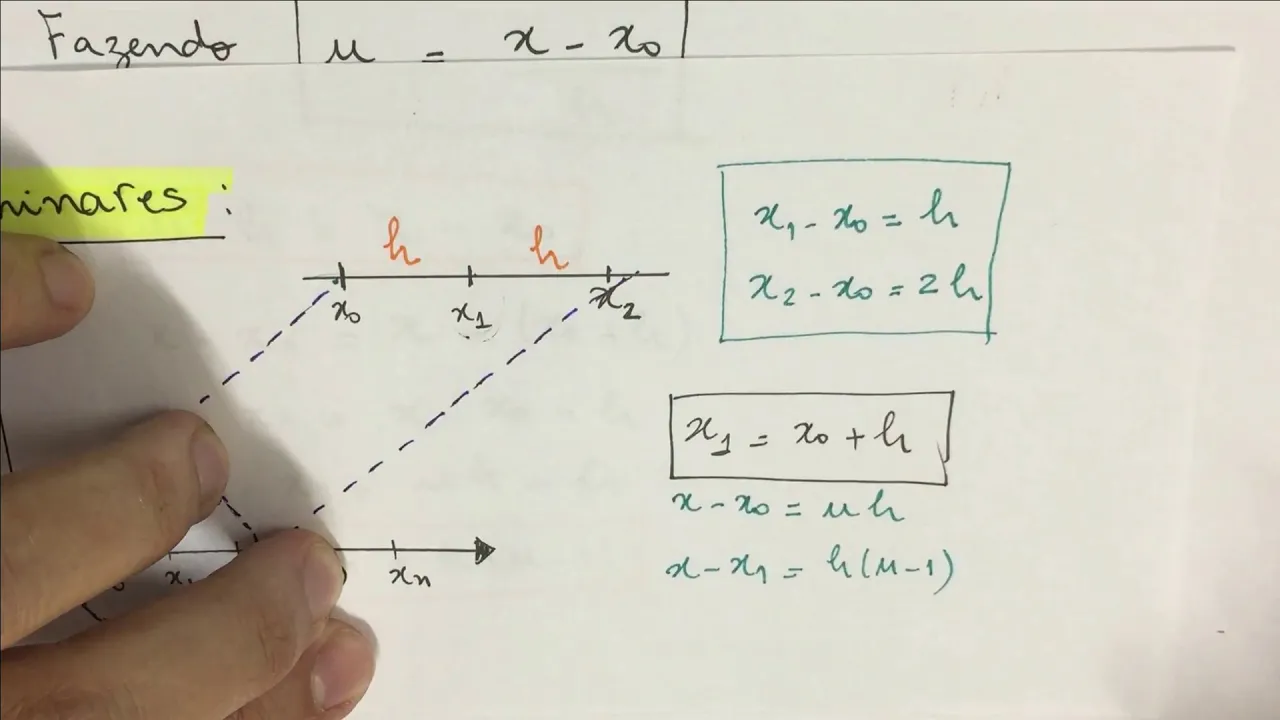 Fazendo u = x - x₀
minares :
h h
x₀ x₁ x₂
x₁ - x₀ = h
x₂ - x₀ = 2h
x₁ = x₀ + h
x - x₀ = uh
x - x₁ = h(u-1)
xₙ